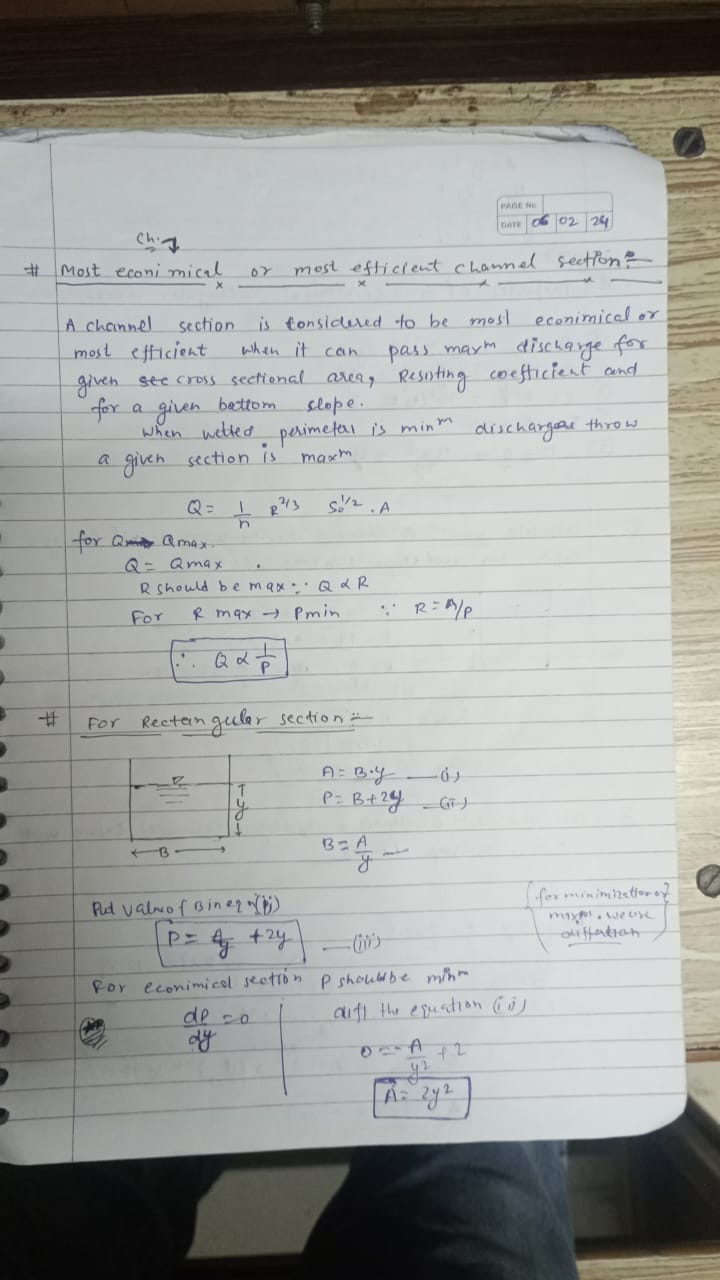 PAGE No
DATE 06 02 24
Ch. 7
# Most econi mical or most efficient channel section:-
A channel section is considered to be most econimical or
most efficient when it can pass maxm discharge for
given see cross sectional area, Resisting coefficient and
for a given bottom slope.
When wetted perimeter is minm discharge throw
a given section is maxm
Q = 1/n R^2/3 So^1/2 . A
for Qmax.
Q = Qmax .
R should be max ∵ Q α R
For R max → Pmin ∵ R = A/P
∴ Q α 1/P
# For Rectangular section :-
A = B.y — (i)
P = B + 2y — (ii)
y
B
B = A/y —
Put value of B in eqn (ii)
(for minimization of
maxm. we use
P = A/y + 2y — (iii)
For econimical section P should be minm
dP/dy = 0
diff the equation (iii)
0 = -A/y² + 2
A = 2y²